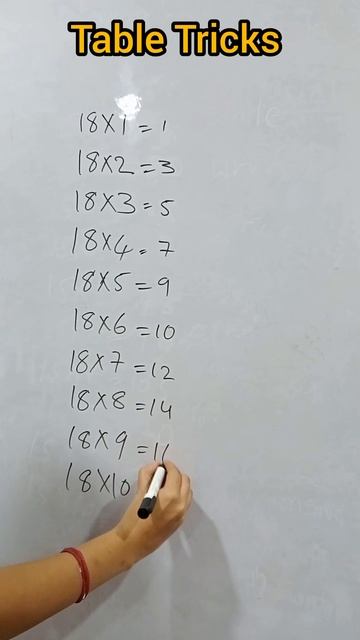 Table Tricks
18X1 = 1
18X2 = 3
18X3 = 5
18X4 = 7
18X5 = 9
18X6 = 10
18X7 = 12
18X8 = 14
18X9 = 1
18X10